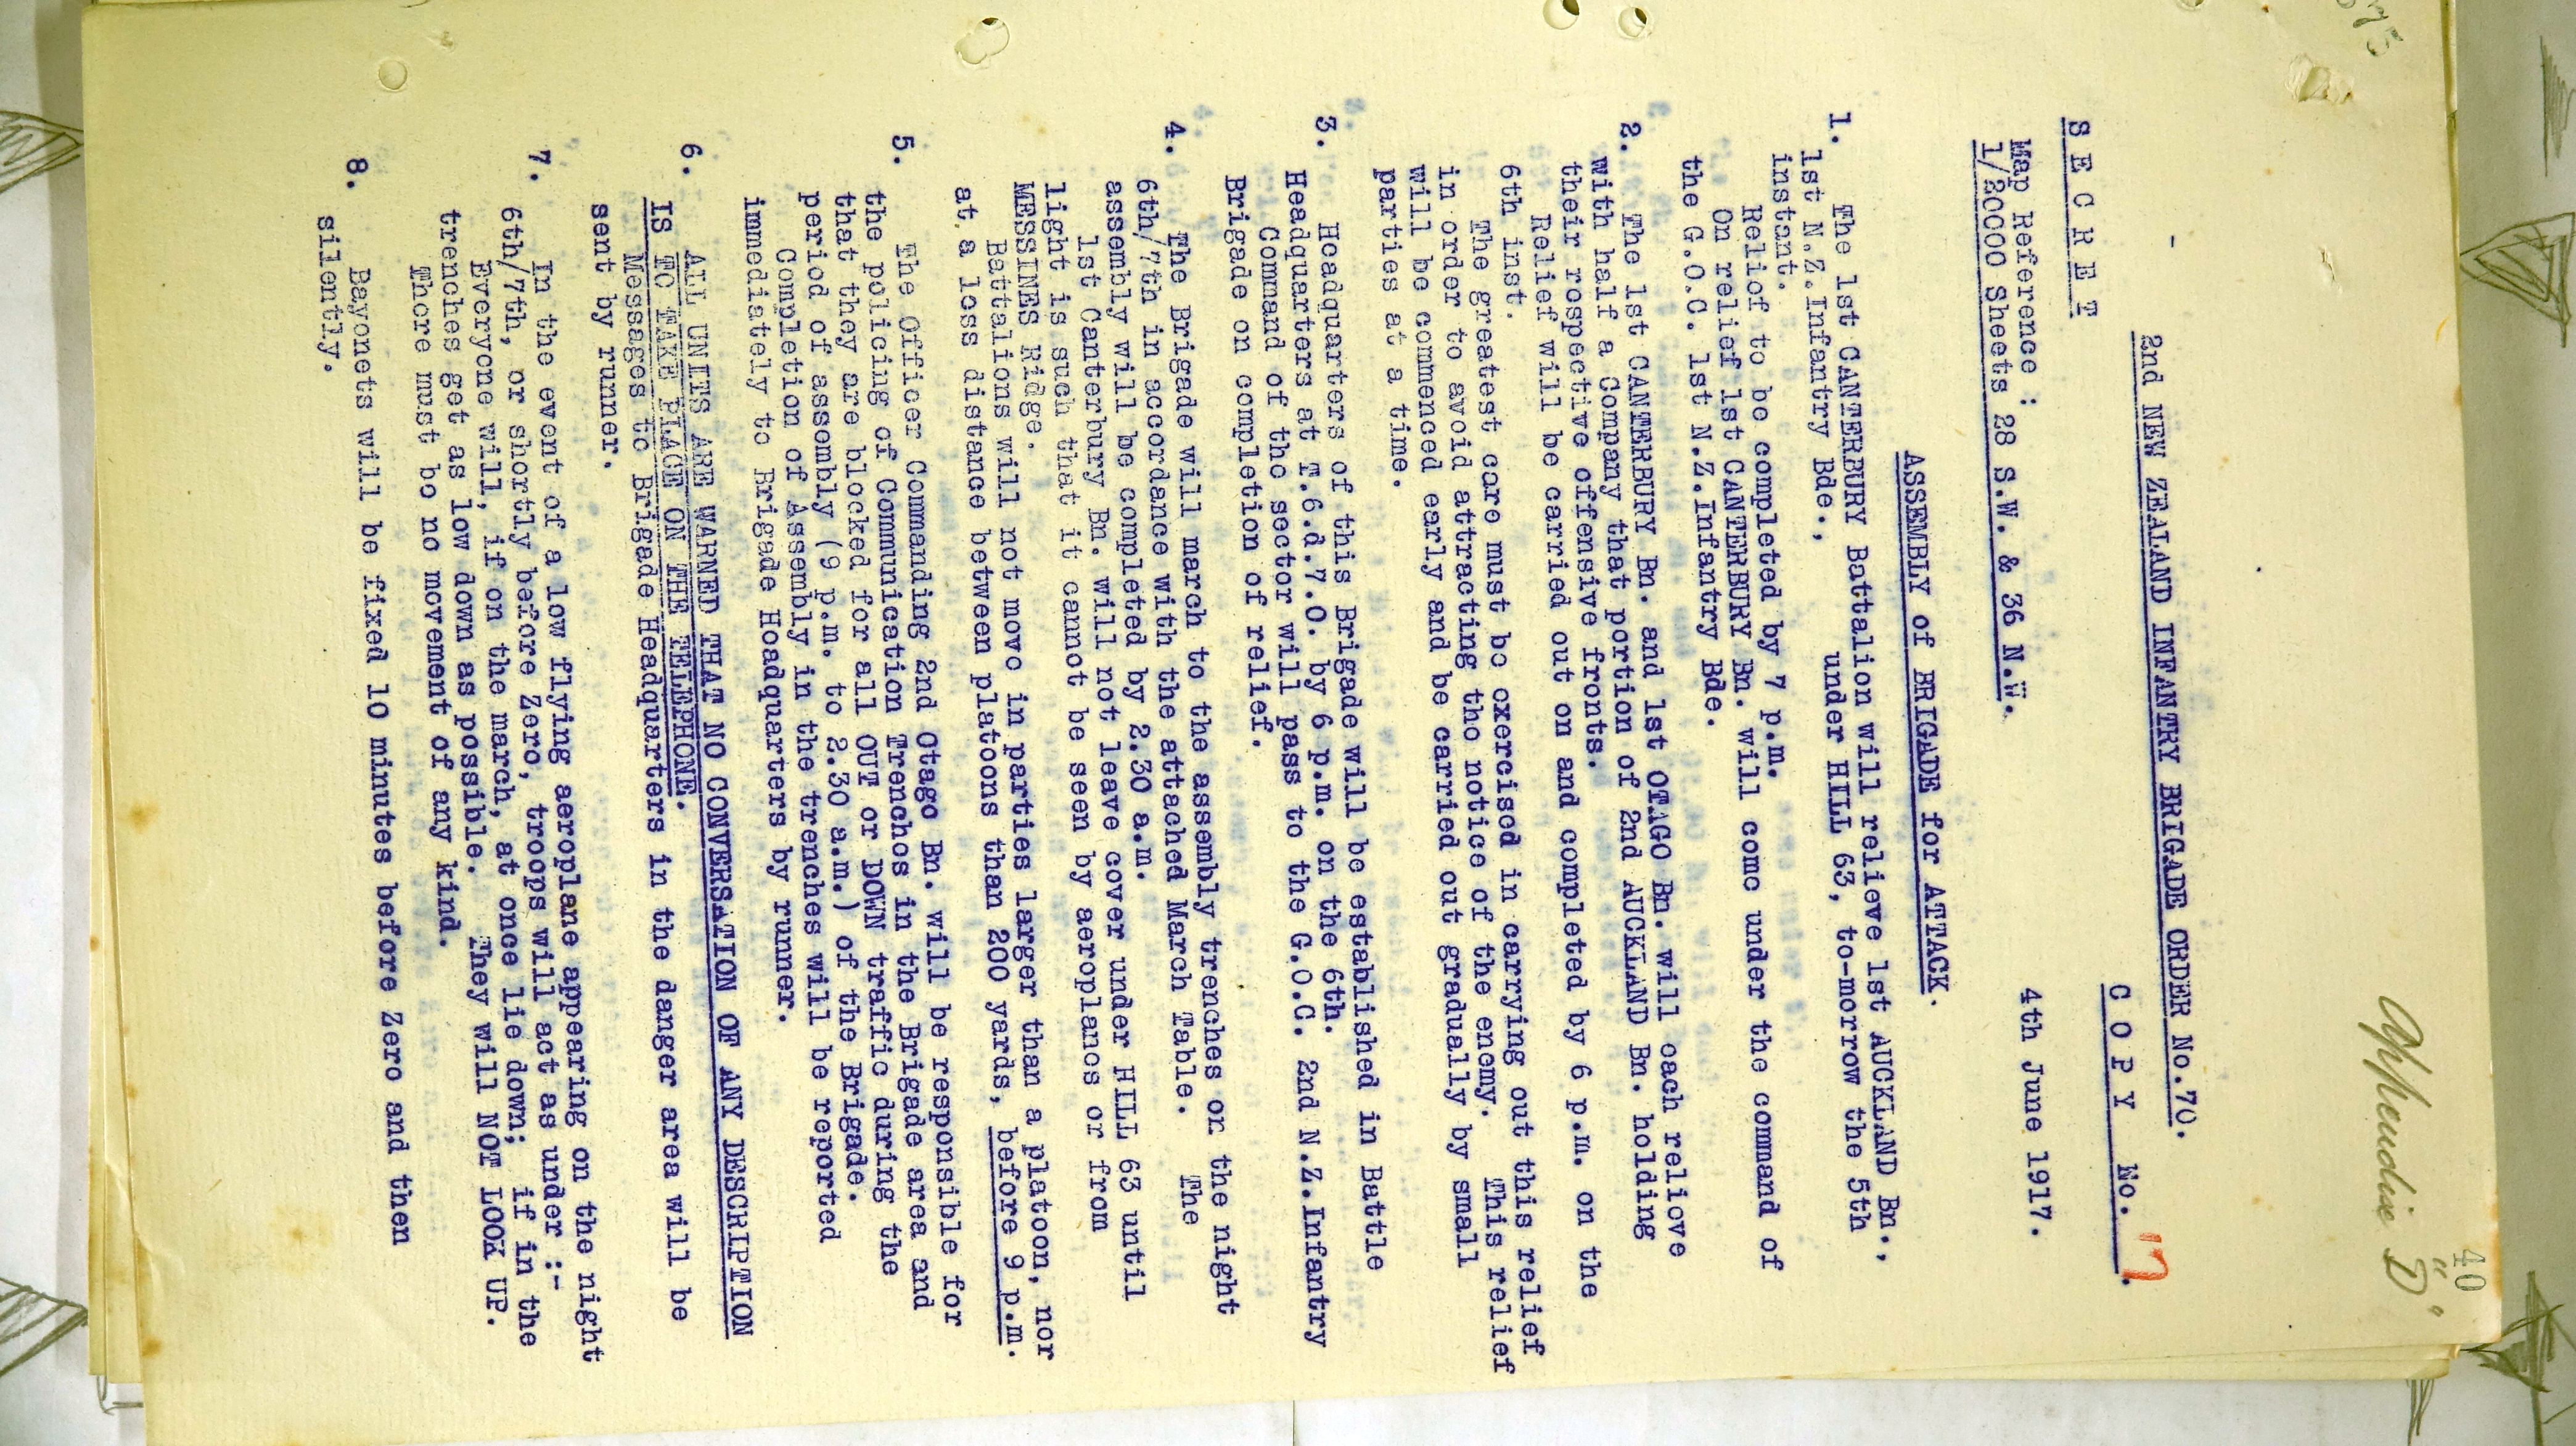 40
Appendix "D"
2nd NEW ZEALAND INFANTRY BRIGADE ORDER No.70.
COPY No. 17.
SECRET
Map Reference :
1/20000 Sheets 28 S.W. & 36 N.W.
4th June 1917.
ASSEMBLY of BRIGADE for ATTACK.
1. The 1st CANTERBURY Battalion will relieve 1st AUCKLAND Bn.,
1st N.Z.Infantry Bde., under HILL 63, to-morrow the 5th
instant.
Relief to be completed by 7 p.m.
On relief 1st CANTERBURY Bn. will come under the command of
the G.O.C. 1st N.Z.Infantry Bde.
2. The 1st CANTERBURY Bn. and 1st OTAGO Bn. will each relieve
with half a Company that portion of 2nd AUCKLAND Bn. holding
their respective offensive fronts.
Relief will be carried out on and completed by 6 p.m. on the
6th inst.
The greatest care must be exercised in carrying out this relief
in order to avoid attracting the notice of the enemy. This relief
will be commenced early and be carried out gradually by small
parties at a time.
3. Headquarters of this Brigade will be established in Battle
Headquarters at T.6.d.7.0. by 6 p.m. on the 6th.
Command of the sector will pass to the G.O.C. 2nd N.Z.Infantry
Brigade on completion of relief.
4. The Brigade will march to the assembly trenches on the night
6th/7th in accordance with the attached March Table. The
assembly will be completed by 2.30 a.m.
1st Canterbury Bn. will not leave cover under HILL 63 until
light is such that it cannot be seen by aeroplanes or from
MESSINES Ridge.
Battalions will not move in parties larger than a platoon, nor
at a less distance between platoons than 200 yards, before 9 p.m.
5. The Officer Commanding 2nd Otago Bn. will be responsible for
the policing of Communication Trenches in the Brigade area and
that they are blocked for all OUT or DOWN traffic during the
period of assembly (9 p.m. to 2.30 a.m.) of the Brigade.
Completion of Assembly in the trenches will be reported
immediately to Brigade Headquarters by runner.
6. ALL UNITS ARE WARNED THAT NO CONVERSATION OF ANY DESCRIPTION
IS TO TAKE PLACE ON THE TELEPHONE.
Messages to Brigade Headquarters in the danger area will be
sent by runner.
7. In the event of a low flying aeroplane appearing on the night
6th/7th, or shortly before Zero, troops will act as under :-
Everyone will, if on the march, at once lie down; if in the
trenches get as low down as possible. They will NOT LOOK UP.
There must be no movement of any kind.
8. Bayonets will be fixed 10 minutes before Zero and then
silently.